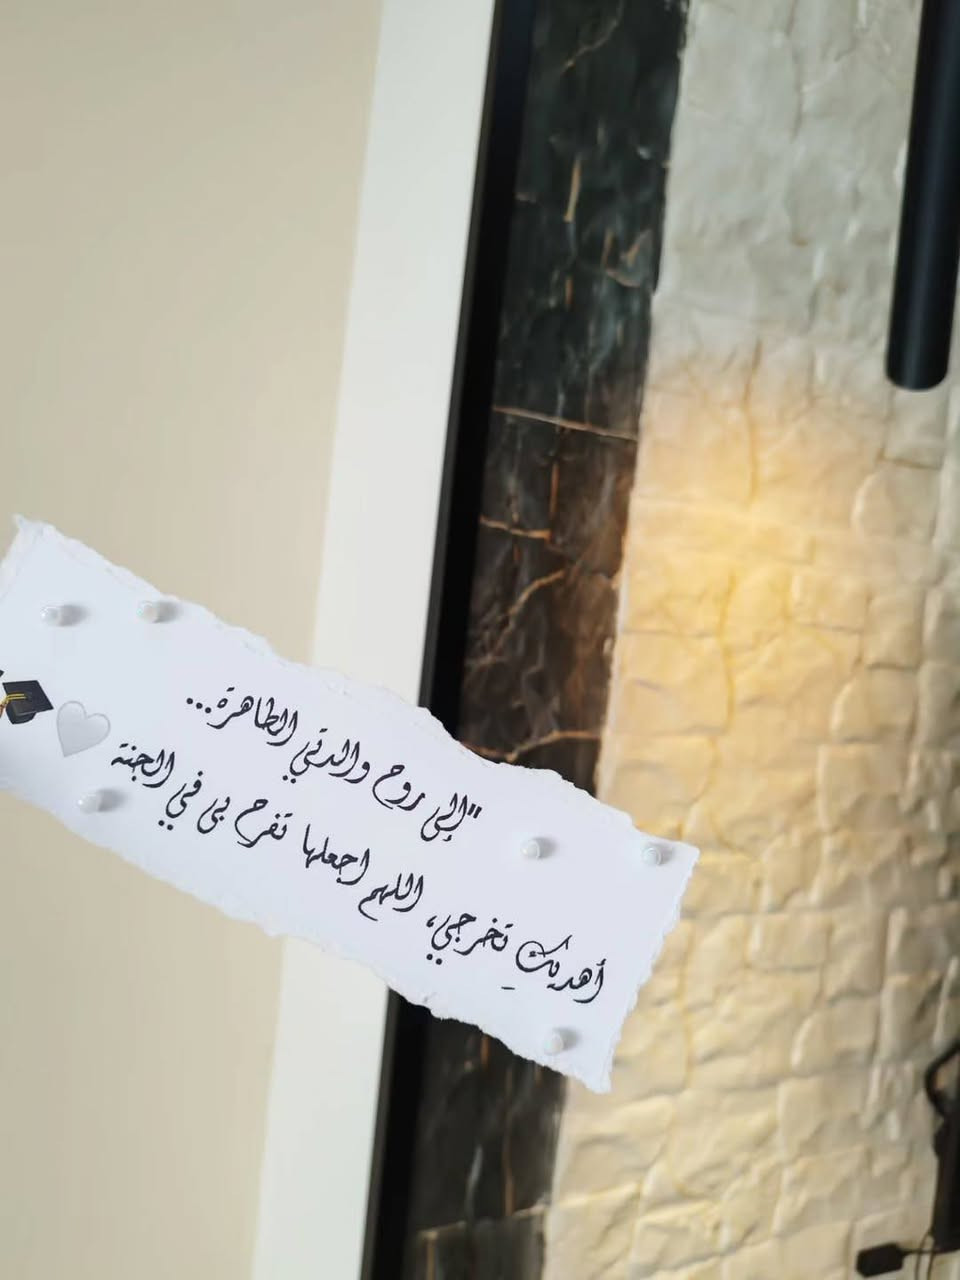 "إلى روح والدتي الطاهرة...
أهديكِ تخرجي، اللهم اجعلها تفرح بي في الجنة 🤍🎓